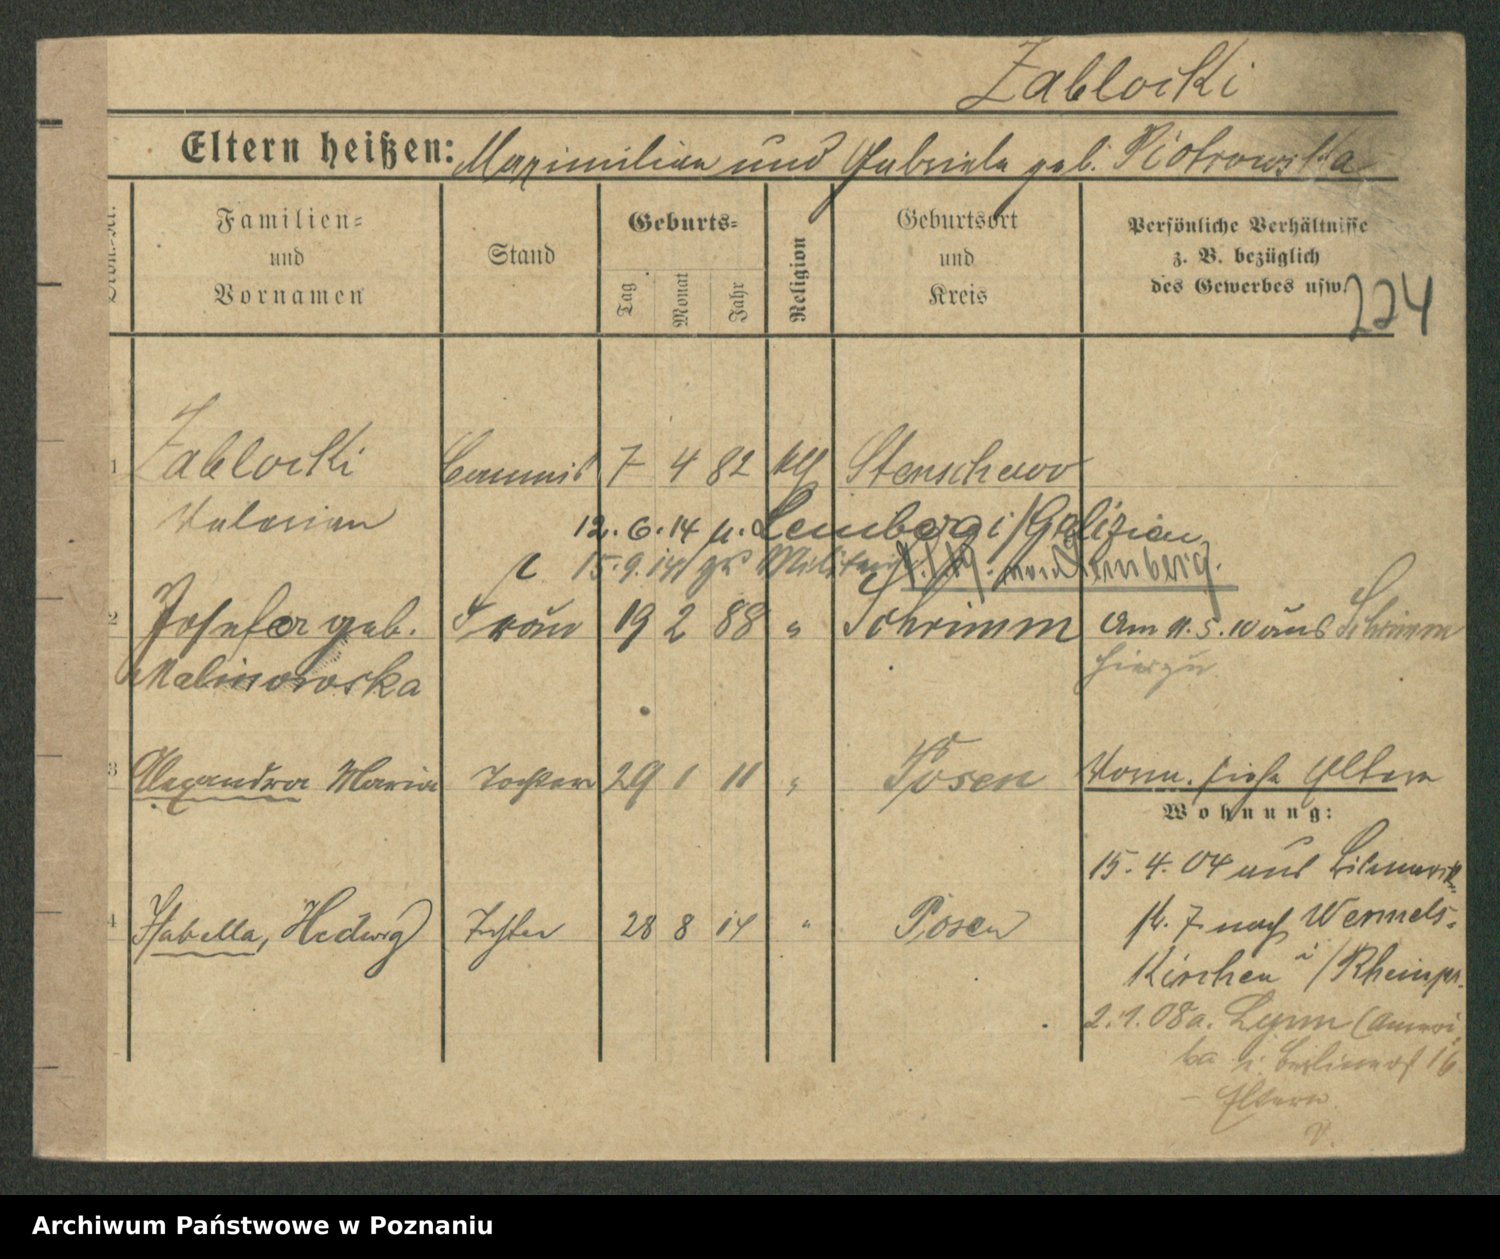 Zablocki
Eltern heißen: Maximilian und Gabriela geb. Piotrowska
Familien= und Vornamen
Stand
Geburts=
Tag Monat Jahr
Religion
Geburtsort und Kreis
Persönliche Verhältnisse
z. B. bezüglich
des Gewerbes usw.
224
1 Zablocki Commis 7 4 82 kth Stenschewo
Valerian 12. 6. 14 n. Lemberg i/Galizien
15. 9. 14 Militär nach Lemberg.
2 Josefa geb. Frau 19 2 88 " Schrimm Am 11. 5. 10 aus Schrimm
Malinowska hierzu
3 Alexandra Maria Tochter 29 1 11 " Posen Vorm. siehe Eltern
Wohnung:
15. 4. 04 aus Bismarck-
str. 7 nach Wermels-
4 Isabella, Hedwig Tochter 28 8 14 " Posen
Kirchen i/Rheinpr.
2. 1. 08 a. Lynn (Ameri
ka n. Berlinerst 16
– Eltern
Archiwum Państwowe w Poznaniu